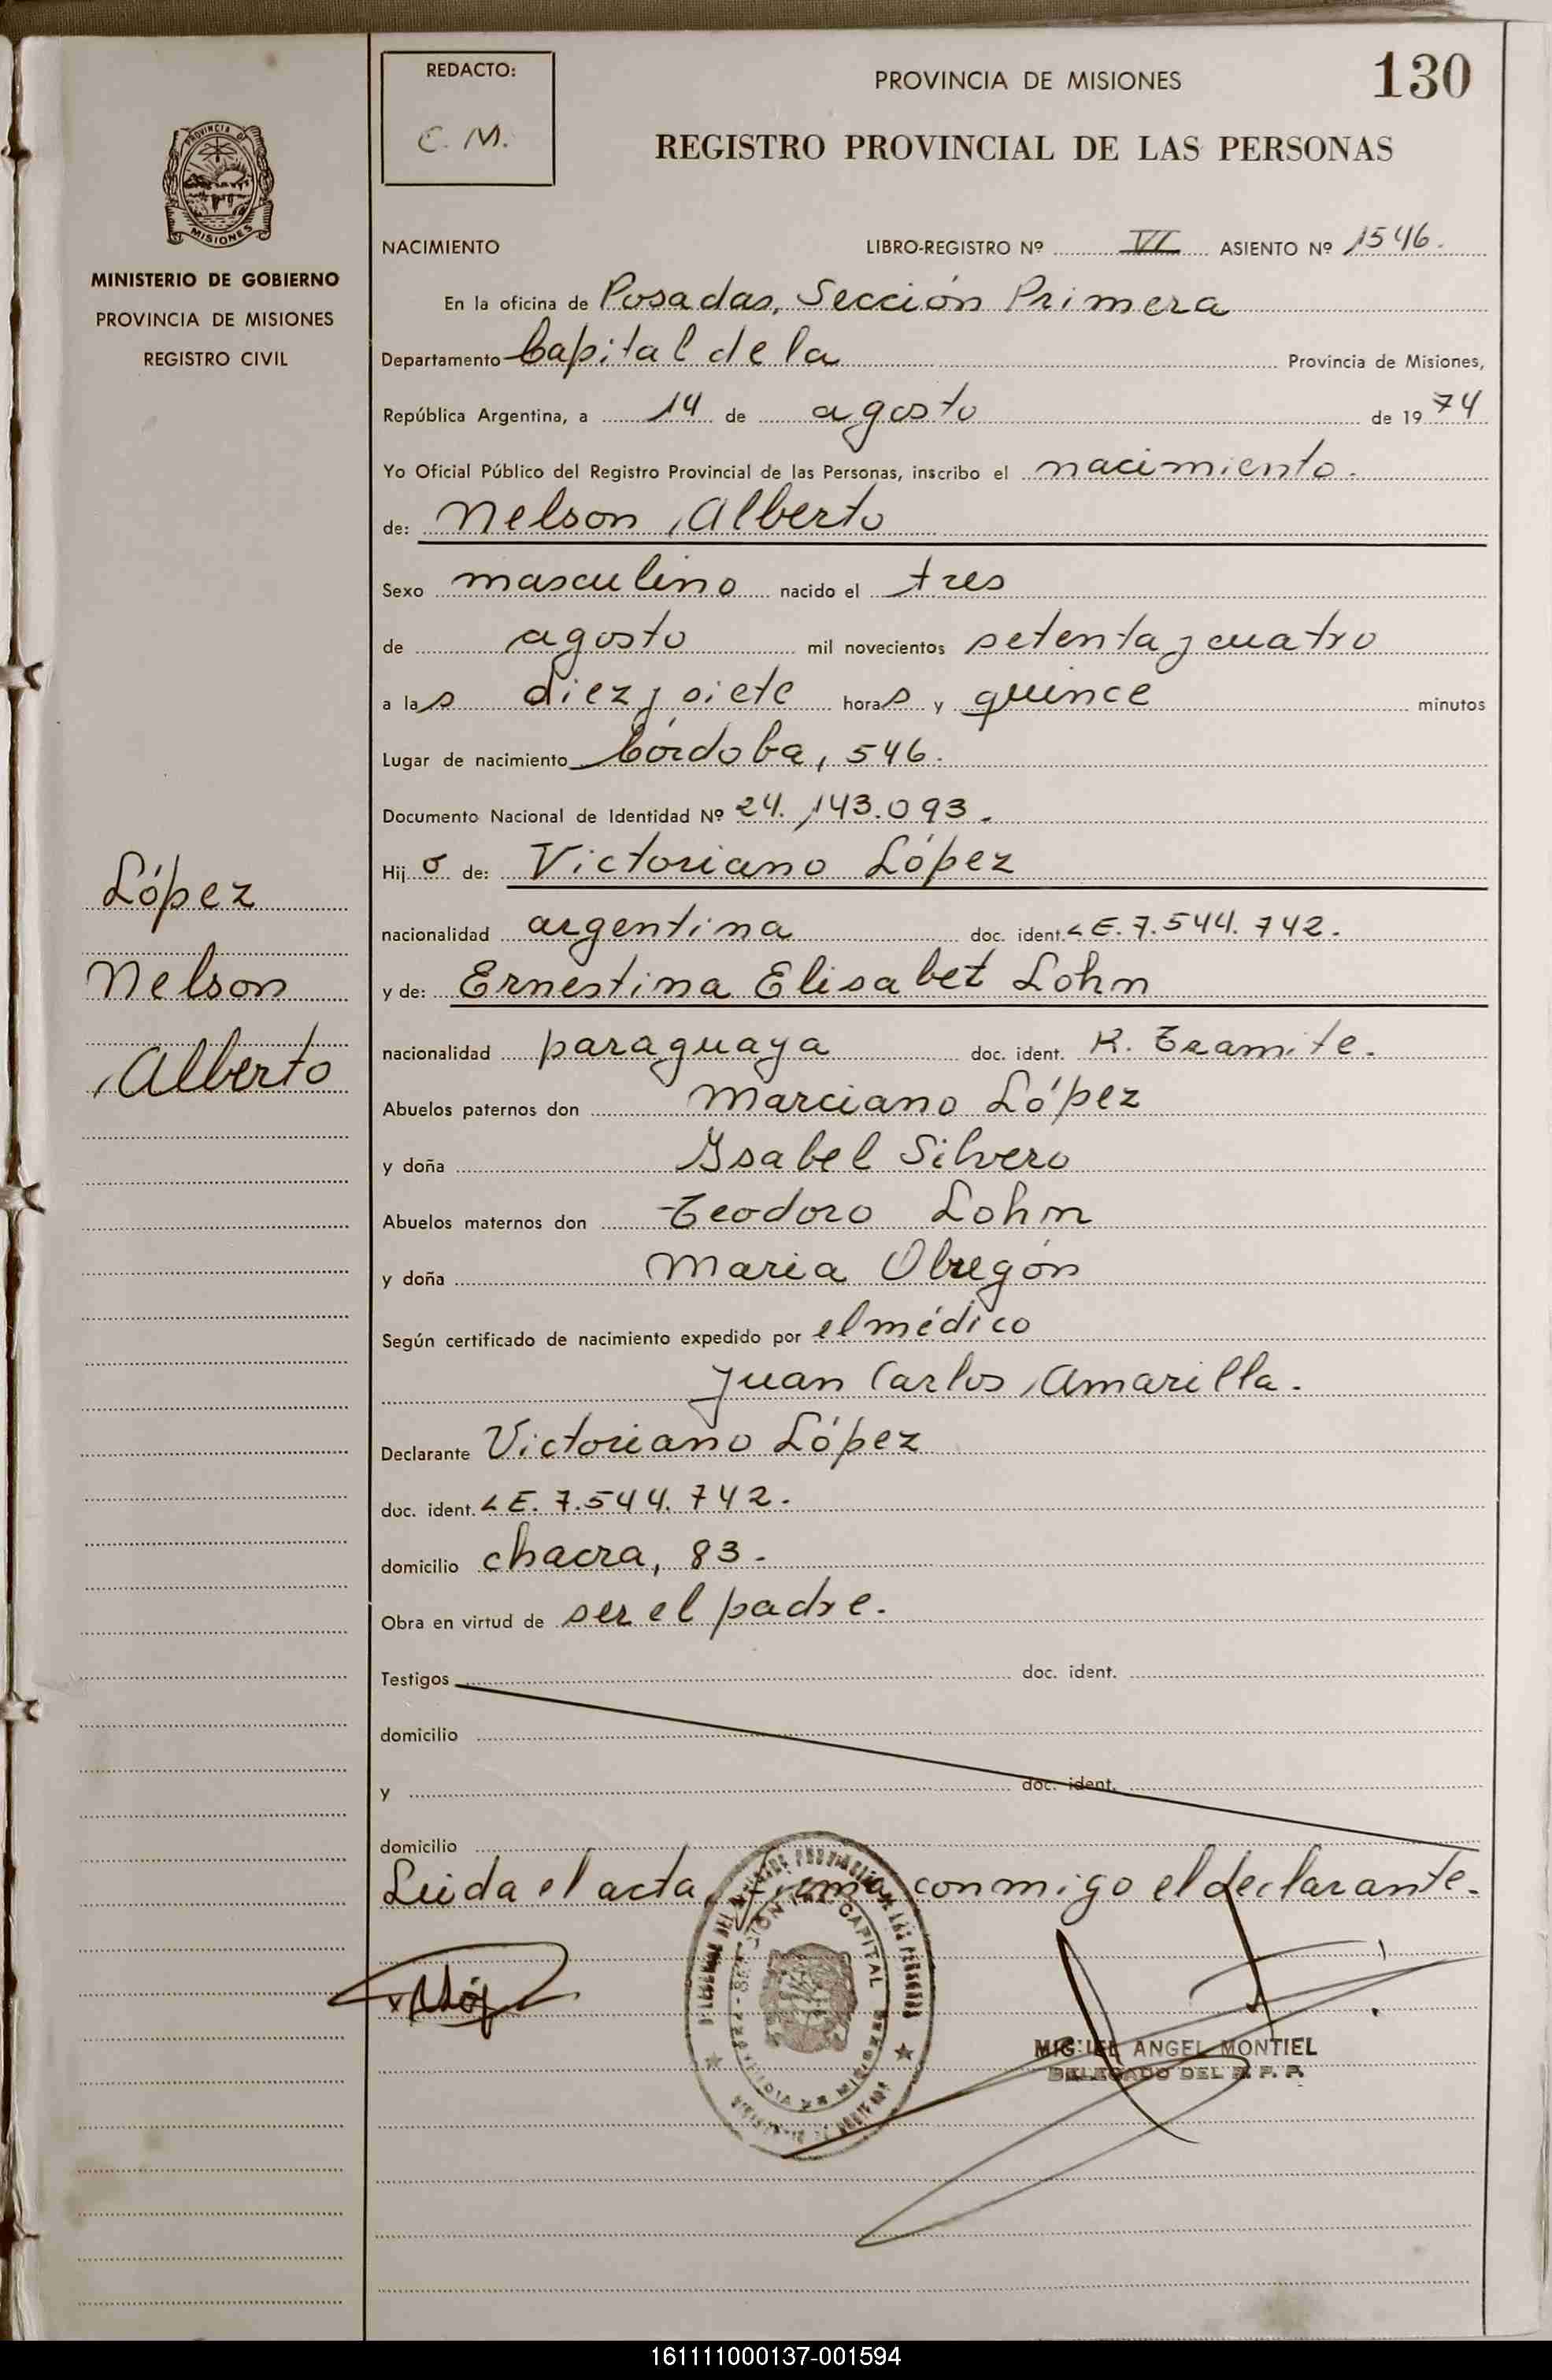 REDACTO:
C. M.
PROVINCIA DE MISIONES
130
REGISTRO PROVINCIAL DE LAS PERSONAS
PROVINCIA DE
MISIONES
MINISTERIO DE GOBIERNO
PROVINCIA DE MISIONES
REGISTRO CIVIL
NACIMIENTO LIBRO-REGISTRO Nº VI ASIENTO Nº 1546.
En la oficina de Posadas, Sección Primera
Departamento Capital de la Provincia de Misiones,
República Argentina, a 14 de agosto de 1974
Yo Oficial Público del Registro Provincial de las Personas, inscribo el nacimiento.
de: Nelson Alberto
Sexo masculino nacido el tres
de agosto mil novecientos setenta y cuatro
a las diez y siete horas y quince minutos
Lugar de nacimiento Córdoba, 546.
Documento Nacional de Identidad Nº 24.143.093.
Hijo de: Victoriano López
nacionalidad argentina doc. ident. L E. 7.544.742.
y de: Ernestina Elisabet Lohn
nacionalidad paraguaya doc. ident. K. Tramite.
Abuelos paternos don Marciano López
y doña Ysabel Silvero
Abuelos maternos don Teodoro Lohn
y doña Maria Obregón
Según certificado de nacimiento expedido por el médico
Juan Carlos Amarilla.
Declarante Victoriano López
doc. ident. L E. 7.544.742.
domicilio chacra, 83.
Obra en virtud de ser el padre.
Testigos doc. ident.
domicilio
y doc. ident.
domicilio
Leida el acta, firma conmigo el declarante.
López
Nelson
Alberto
CAPITAL
MIGUEL ANGEL MONTIEL
DELEGADO DEL R. P. P.
161111000137-001594